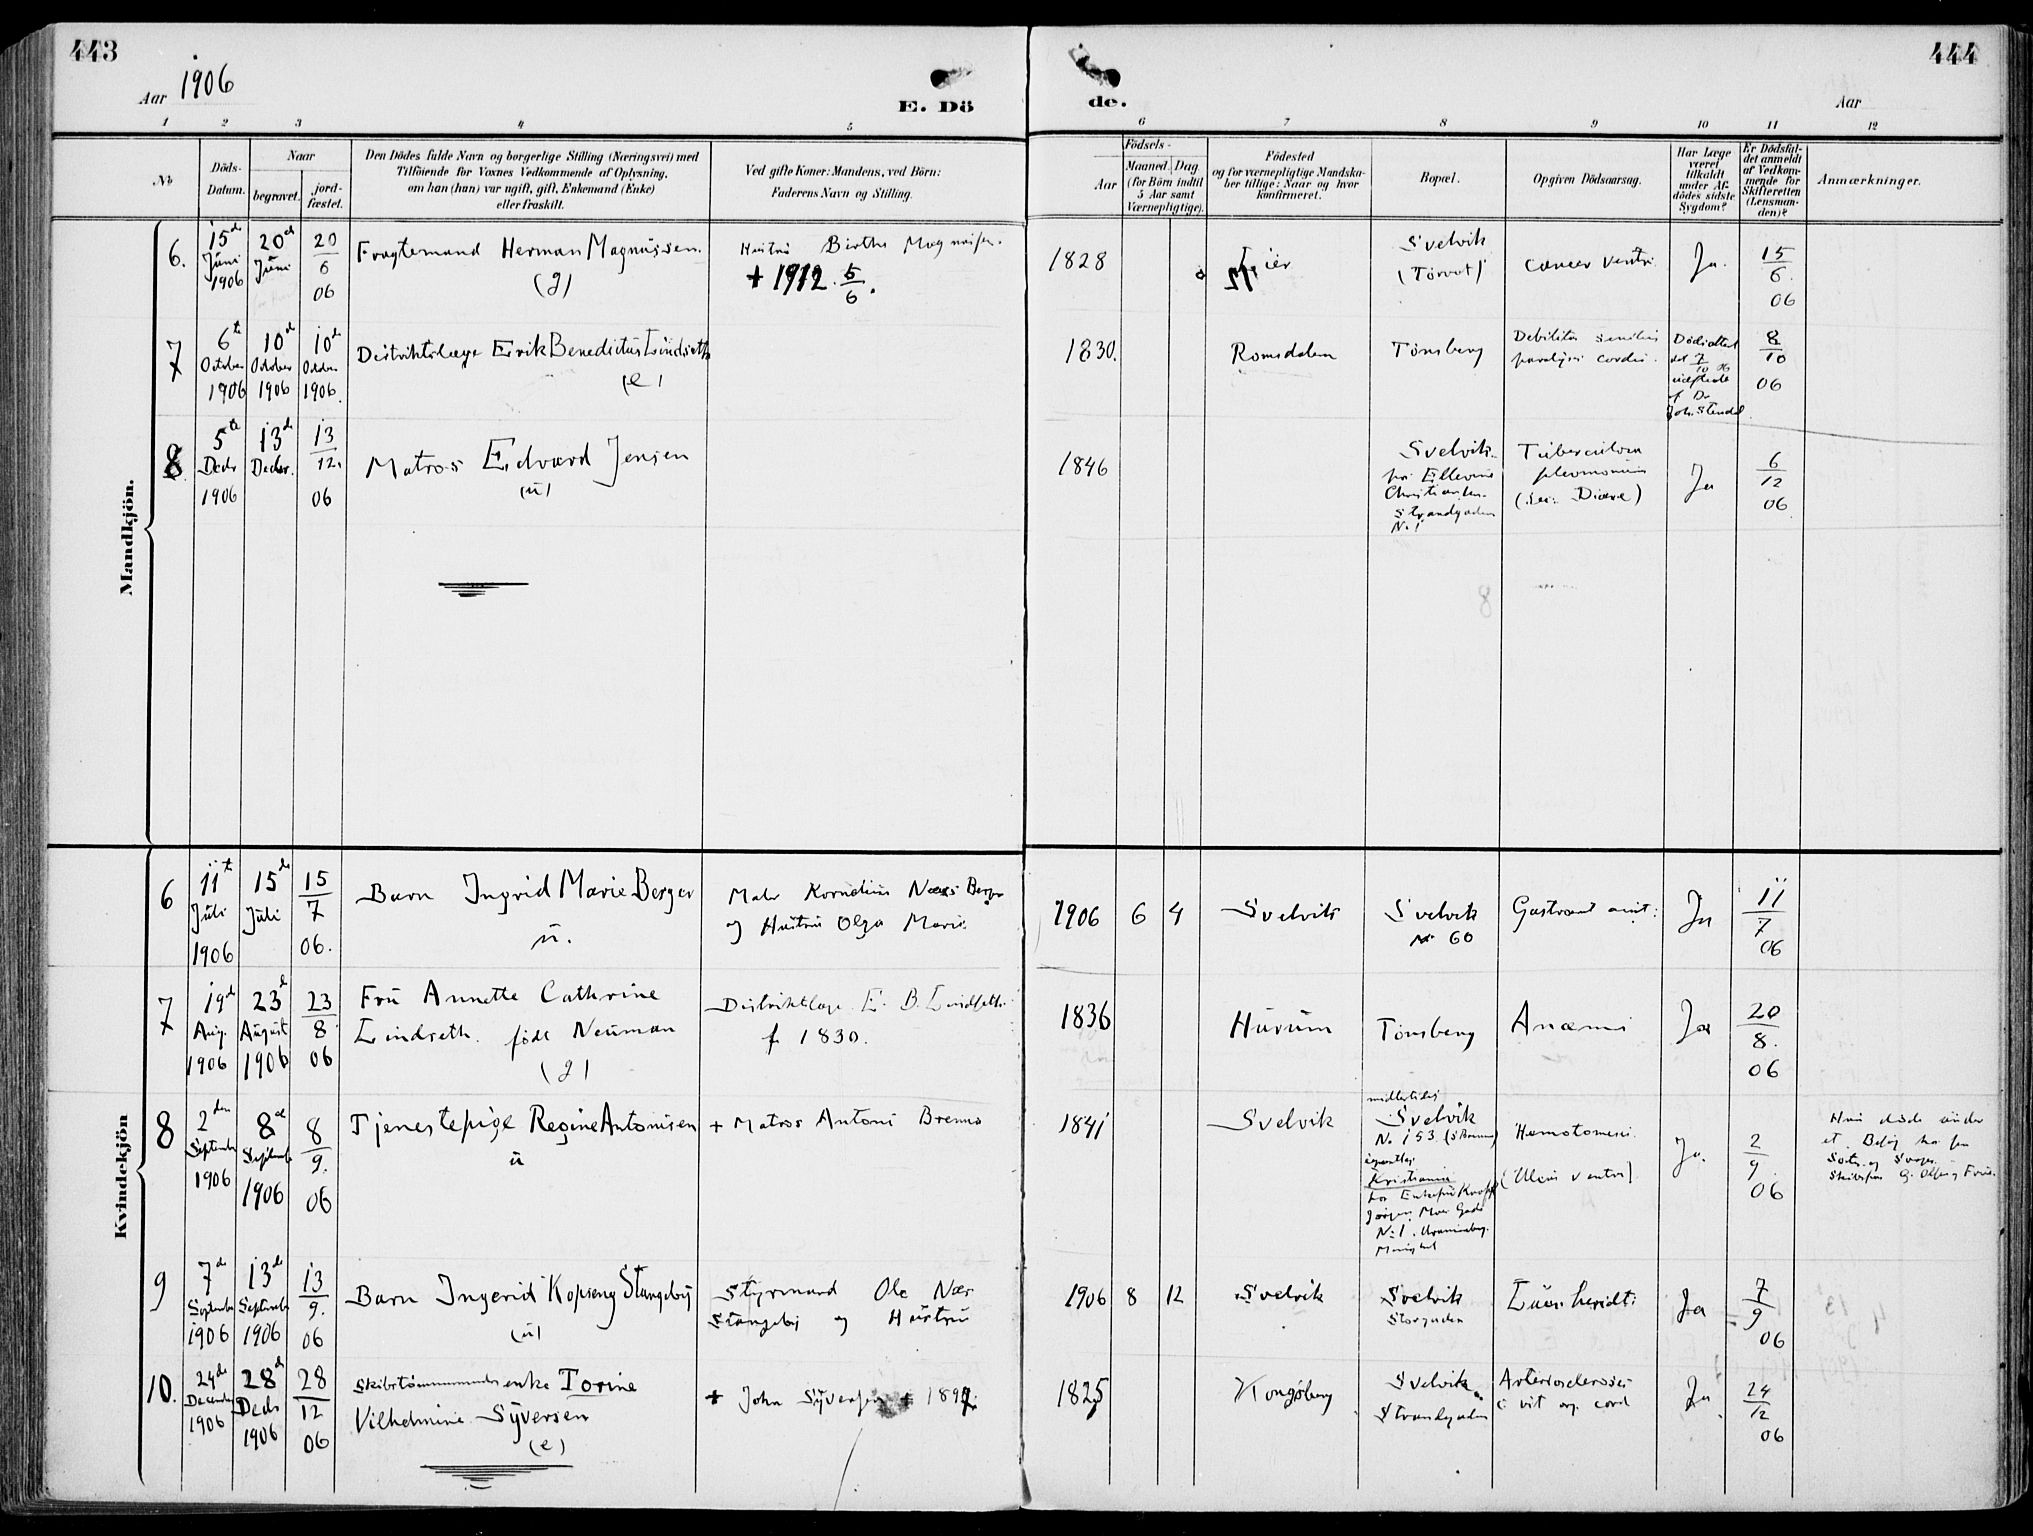 443
444
Aar 1906
E. Dö
de.
Aar
1 2 3 4 5 6 7 8 9 10 11 12
No
Döds-
Datum.
Naar
begravet.
jord-
fæstet.
Den Dödes fulde Navn og borgerlige Stilling (Næringsvei) med
Tilföiende for Voxnes Vedkommende af Oplysning,
om han (hun) var ugift, gift, Enkemand (Enke)
eller fraskilt.
Ved gifte Koner: Mandens, ved Börn:
Faderens Navn og Stilling.
Födsels-
Aar
Maaned.
Dag.
(for Börn indtil
5 Aar samt
Værnepligtige).
Födested
og for værnepligtige Mandska-
ber tillige: Naar og hvor
konfirmeret.
Bopæl.
Opgiven Dödsaarsag.
Har Læge
været
tilkaldt
under Af-
dödes sidste
Sygdom?
Er Dödsfal-
det anmeldt
af Vedkom-
mende for
Skifteretten
(Lensman-
den)?
Anmærkninger.
Mandkjön.
6.
15de
Juni
1906
20de
Juni
20
6
06
Fragtemand Herman Magnussen.
(g)
Hustru Birthe Magnussen.
+ 1912. 5
6.
1828
Lier
Svelvik
(Torvet)
cancer ventr.
Ja.
15
6.
06
7
6te
October
1906
10de
October
1906
10de
October
1906.
Distriktslæge Erik Benedictus Lindseth
(e)
1830.
Romsdalen
Tönsberg
Debilitas senilis
paralysis cordis.
Dödsattest
det 7
10 06
af Dr
Joh. Stendal
8
10
06
8
5te
Decbr
1906
13de
Decbr.
13
12.
06
Matros Edvard Jensen
(u)
1846
Svelvik.
hos Ellevine
Christiansen.
Strandgaden
No 1
Tuberculosis
pleumonum
Ja
6
12
06
Kvindekjön
6
11te
Juli
1906
15de
Juli
15
7
06.
Barn Ingrid Marie Berger
u.
Maler Kornelius Næss Berger
og Hustru Olga Marie
1906 6 4
Svelvik
Svelvik
No 60
Gastroent acut:
Ja
11
7
06
7
19de
Aug.
1906
23de
August
1906
23
8
06
Fru Annette Cathrine
Lindseth. födt Neuman
(g)
Distriktslæge E. B. Lindseth.
f 1830.
1836
Hurum
Tönsberg
Anæmi
Ja
20
8.
06
8
2den
September
1906
8de
September
1906
8
9.
06
Tjenestepige Regine Antonisen
u
+ Matros Antoni Brenno
1841
Svelvik
midlertidig
Svelvik
No 153
egentlig
Kristiania
hos Enkefru
Jörgen Moes Gade
No 1. Uranienborg.
Menighed
Hæmatemesi.
(Ulcus ventri)
Ja.
2
9
06
Hun döde under
et Besög hos sin
Söster og Svoger
9
7de
September
1906
13de
September
1906
13
9.
06
Barn Ingerid Kopseng Stangeby
(u)
Styrmand Ole Nær
Stangeby og Hustru
1906 8 12
Svelvik
Svelvik
Storgaden
Lues heridt:
Ja
7
9
06
10.
24de
December
1906
28de
Decbr
1906
28
12
06
Skibstömmermandsenke Torine
Vilhelmine Syversen
(e)
+ John Syversen + 1892
1825
Kongsberg
Svelvik.
Strandgaden
Arteriosclerosis
c. vit org. cord
Ja
24
12
06